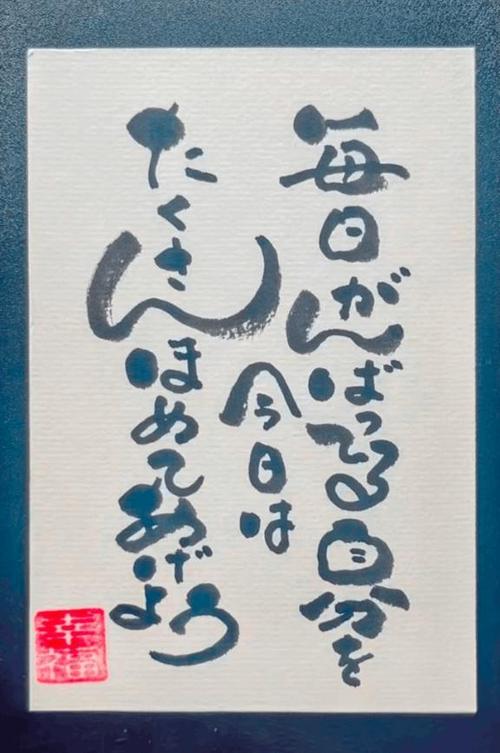 毎日がんばってる自分を
今日は
たくさんほめてあげよう
幸福